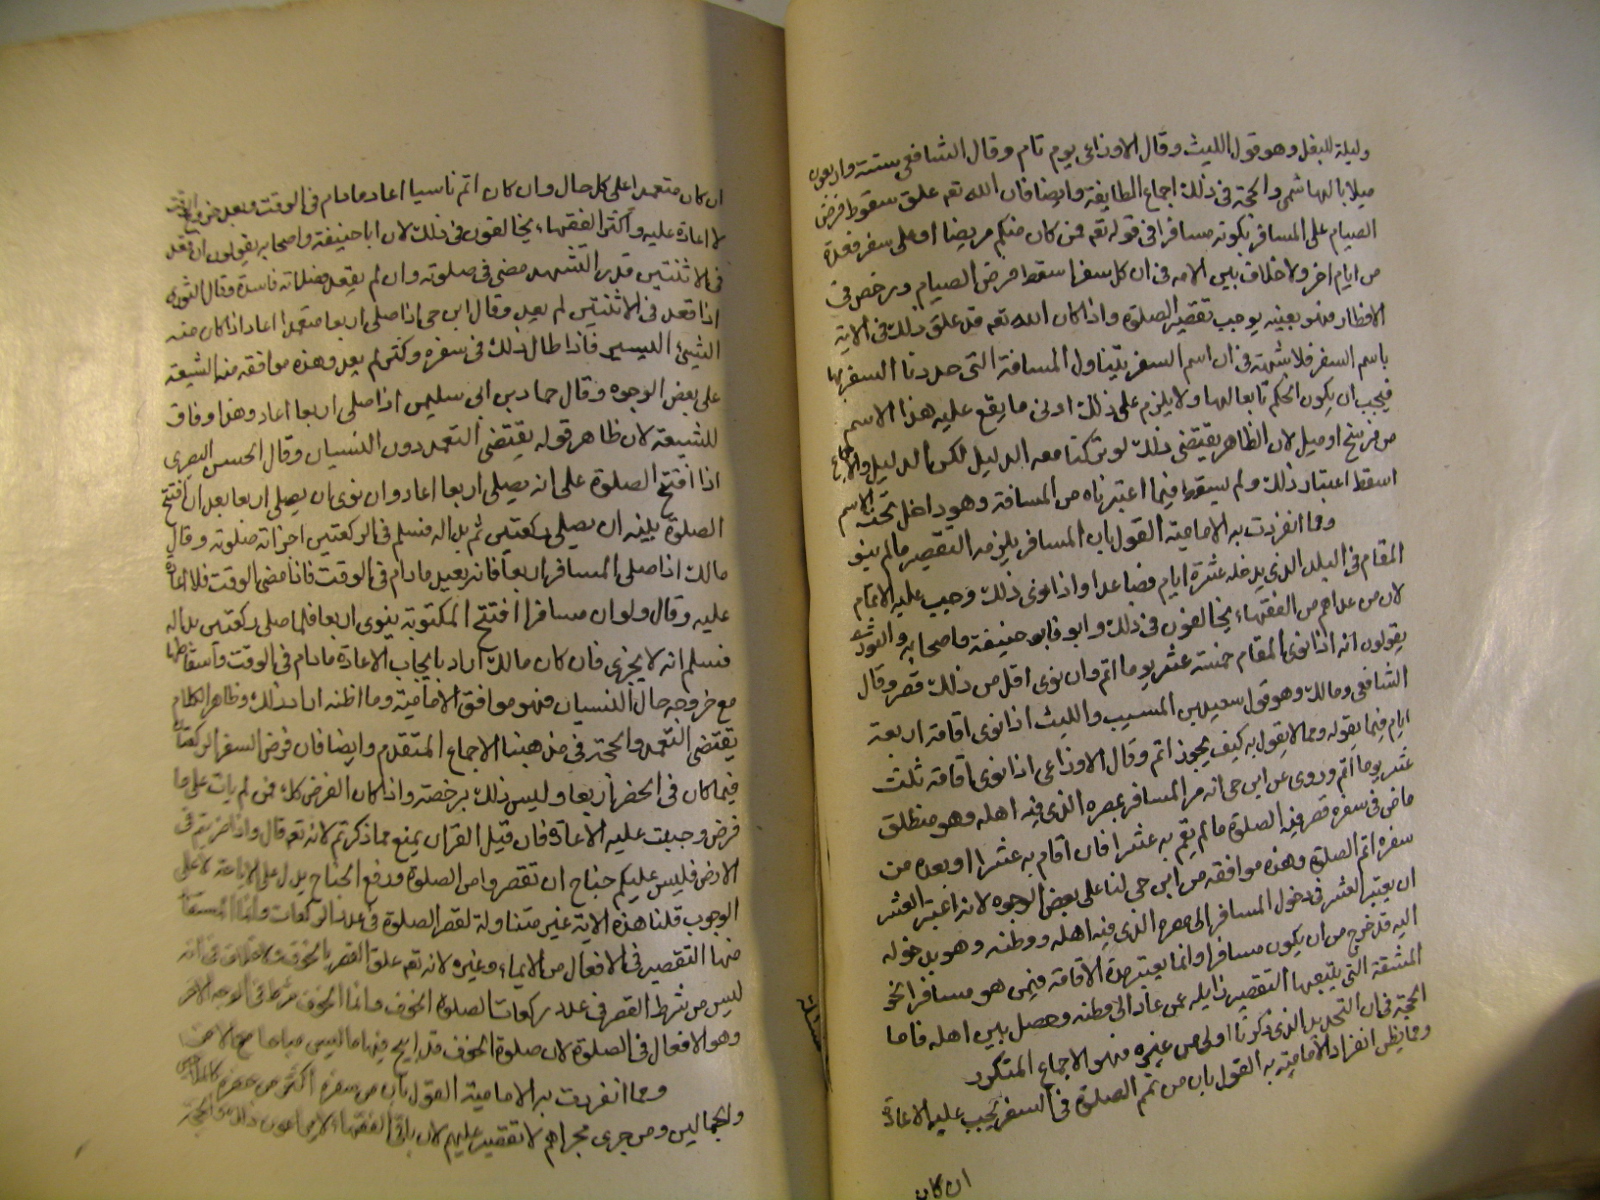 وليلة للبغل وهو قول الليث وقال الاوزاعى يوم تام وقال الشافعى ستة واربعون
ميلا بالهاشمى والحجة فى ذلك اجماع الطايفة وايضا فان الله تعه علق سقوط فرض
الصيام على المسافر بكونه مسافرا فى قوله تعه فمن كان منكم مريضا او على سفر فعدة
من ايام اخر ولا خلاف بين الامه فى ان كل سفر اسقط فرض الصيام ورخص فى
الافطار فهو بعينه يوجب تقصير الصلوة واذا كان الله تعه قد علق ذلك فى الاية
باسم السفر فلا شبهة فى ان اسم السفر يتناول المسافة التى حددنا السفر بها
فيجب ان يكون الحكم تابعا لها ولا يلزم على ذلك ادنى ما يقع عليه هذا الاسم
من فرسخ او ميل لان الظاهر يقتضى ذلك لو تركنا معه الدليل لكن الدليل والاجماع
اسقط اعتبار ذلك ولم يسقط فيما اعتبرناه من المسافة وهو داخل تحت الاسم
ومما انفردت به الامامية القول بان المسافر يلزمه التقصير مالم ينو
المقام فى البلد الذى يدخله عشرة ايام فصاعدا واذا نوى ذلك وجب عليه الاتمام
لان من عداهم من الفقهاء يخالفون فى ذلك وابو فابو حنيفة واصحابه والثورى
يقولون انه اذا نوى المقام خمسة عشر يوما اتم وان نوى اقل من ذلك قصر وقال
الشافعى ومالك وهو قول سعيد بن المسيب والليث اذا نوى اقامة اربعة
ايام فيما يقوله ومما لا يقول به كيف يجوز اتم وقال الاوزاعى اذا نوى اقامة ثلث
عشر يوما اتم وروى عن ابن حى انه مر المسافر بمصره الذى فيه اهله وهو منطلق
ماض فى سفره قصر فيه الصلوة مالم يقم به عشرا فان اقام به عشرا او بعده من
سفره اتم الصلوة وهذه موافقه من ابن حى لنا على بعض الوجوه لانه اعتبر العشر
ان يعتبر العشر فى دخول المسافر الى مصره الذى فيه اهله ووطنه وهو بدخوله
اليه قد خرج من ان يكون مسافرا وانما يعتبر مدة الاقامة فيمن هو مسافر
المشقة التى يتبعها التقصير زايله عن عاد الى وطنه وحصل بين اهله فاما
الحجة فى ان التحديد الذى ذكرناه اولى من غيره فهو الاجماع المتكرر
ومما يظن انفراد الامامية به القول بان من تم الصلوة فى السفر يجب عليه الاعادة
ان كان
ان كان متعمدا على كل حال وان كان اتم ناسيا اعاد مادام فى الوقت وبعد خروج الوقت
لا اعادة عليه واكثر الفقهاء يخالفون فى ذلك لان ابا حنيفة واصحابه يقولون ان قعد
فى الاثنتين قدر التشهد مضى فى صلوته وان لم يقعد فصلاته فاسدة وقال الثورى
اذا قعد فى الاثنتين لم يعد وقال ابن حى اذا صلى اربعا متعمدا اعاد اذا كان منه
الشيئ اليسير فاذا طال ذلك فى سفره وكثر لم يعد وهذه موافقه منه للشيعة
على بعض الوجوه وقال حماد بن ابى سليمن اذا صلى اربعا اعاد وهذا وفاق
للشيعة لان ظاهر قوله يقتضى التعمد دون النسيان وقال الحسن البصرى
اذا افتتح الصلوة على انه يصلى اربعا اعاد وان نوى ان يصلى اربعا بعد ان افتتح
الصلوة بنية ان يصلى ركعتين ثم بدا له فسلم فى الركعتين اجزاته صلوته وقال
مالك اذا صلى المسافر اربعا فانه يعيد مادام فى الوقت فاذا مضى الوقت فلا اعادة
عليه وقال ولو ان مسافرا افتتح المكتوبة ينوى اربعا فلما صلى ركعتين بدا له
فسلم انه لا يجزى فان كان مالك اراد بايجاب الاعادة مادام فى الوقت واسقاطها
مع خروجه حال النسيان فهو موافق الامامية وما اظنه اراد ذلك وظاهر الكلام
يقتضى التعمد والحجة فى مذهبنا الاجماع المتقدم وايضا فان فرض السفر الركعتان
فيما كان فى الحضر اربعا وليس ذلك برخصة واذا كان الفرض كذلك فمن لم يات على ما
فرض وجبت عليه الاعادة فان قيل القران يمنع مما ذكرتم لانه تعه قال واذا ضربتم فى
الارض فليس عليكم جناح ان تقصروا من الصلوة ورفع الجناح يدل على الاباحة لا على
الوجوب قلنا هذه الاية غير متناولة لقصر الصلوة فى عدد الركعات وانما المستفاد
منها التقصير فى الافعال من الايماء وغيره لانه تعه علق القصر بالخوف ولا خلاف فى انه
ليس من شرط القصر فى عدد ركعات الصلوة الخوف وانما الخوف شرط فى الوجه الاخر
وهو الافعال فى الصلوة لان صلوة الخوف قد ابيح فيها ما ليس مباحا مع الامن
ومما انفردت به الامامية القول بان من سفره اكثر من حضره كالملاحين
والجمالين ومن جرى مجراهم لا تقصير عليهم لان باقى الفقهاء لا يراعون ذلك والحجة
مسئلة